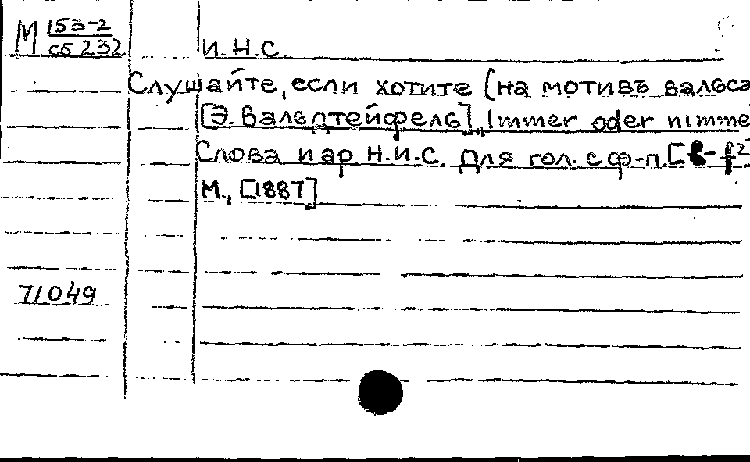 М 153-2
сб 232
И.Н.С.
Слушайте, если хотите (на мотивъ вальса
[Э. Вальдтейфель] „Immer oder nimme
Слова и ар Н.И.С. Для гол. с ф-п.
М., [1887]
71049